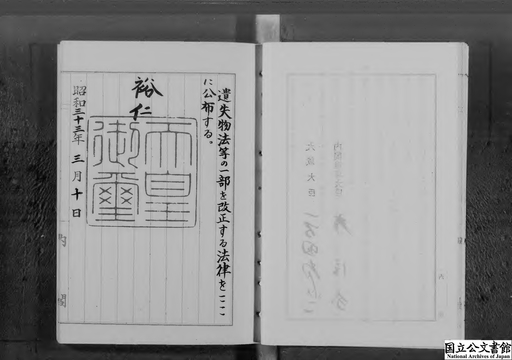 遺失物法等の一部を改正する法律をここ
に公布する。
裕仁
天皇
御璽
昭和三十三年 三月十日
内閣
大蔵大臣
国立公文書館
National Archives of Japan